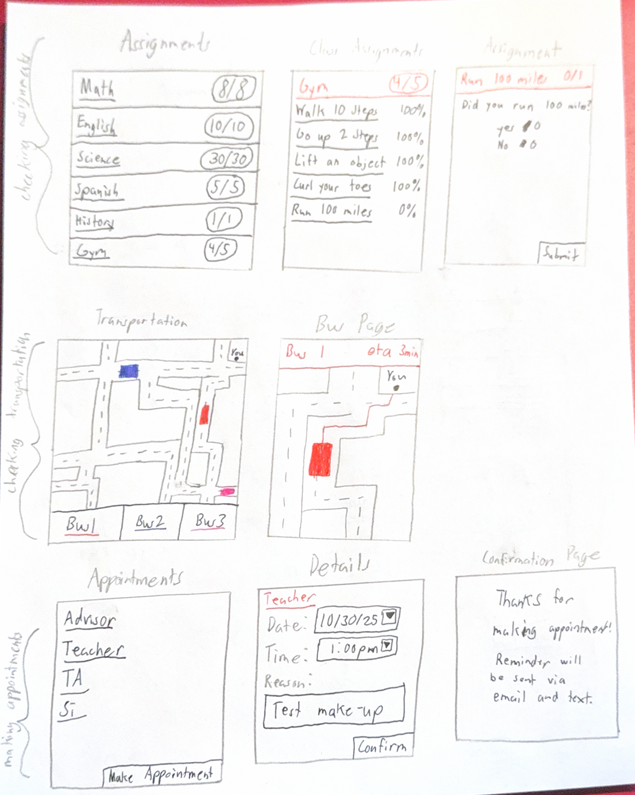 checking assignments
Assignments
Math 8/8
English 10/10
Science 30/30
Spanish 5/5
History 1/1
Gym 4/5
Class Assignments
Gym 4/5
Walk 10 Steps 100%
Go up 2 Steps 100%
Lift an object 100%
Curl your toes 100%
Run 100 miles 0%
Assignment
Run 100 miles 0/1
Did you run 100 miles?
yes
No
Submit
checking transportation
Transportation
You
Bus 1 Bus 2 Bus 3
Bus Page
Bus 1 eta 3min
You
making appointments
Appointments
Advisor
Teacher
TA
SI
Make Appointment
Details
Teacher
Date: 10/30/25
Time: 1:00pm
Reason:
Test make-up
Confirm
Confirmation Page
Thanks for
making appointment!
Reminder will
be sent via
email and text.